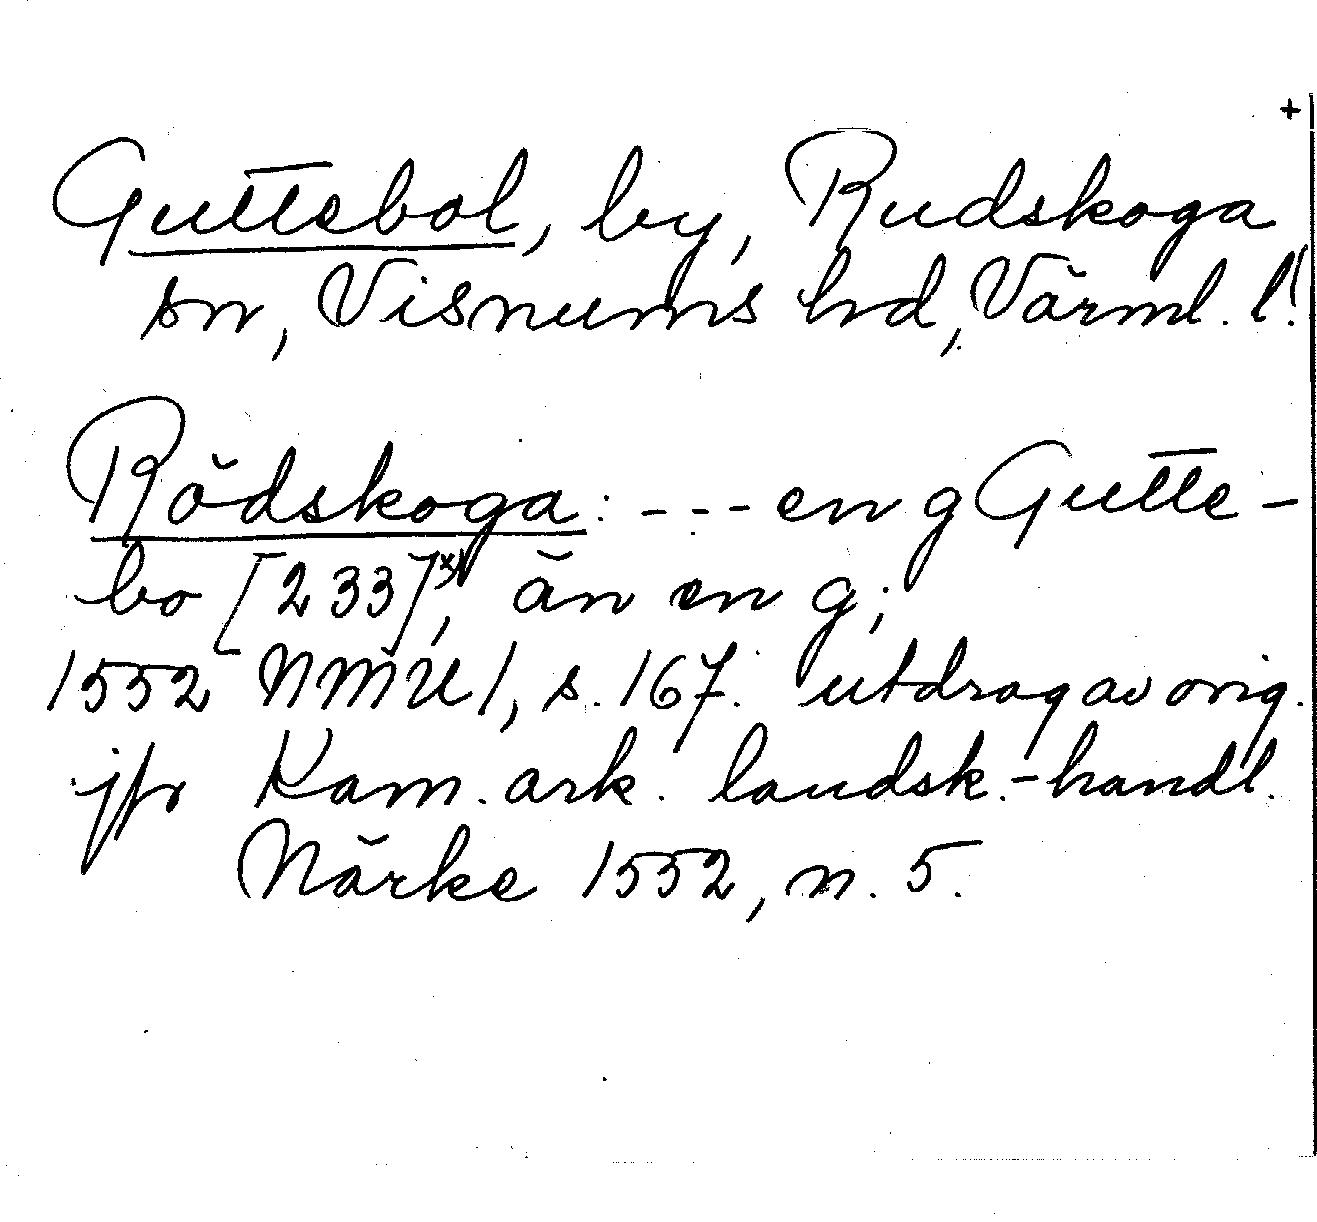 +
Guttebol, by, Rudskoga
sn, Visnums hd, Värml. l!
Rödskoga: --- en g Gutte-
bo [233]x), än en g;
1552 NMU 1, s. 167. utdrag av orig.
jfr Kam. ark. landsk.-handl.
Närke 1552, n. 5.